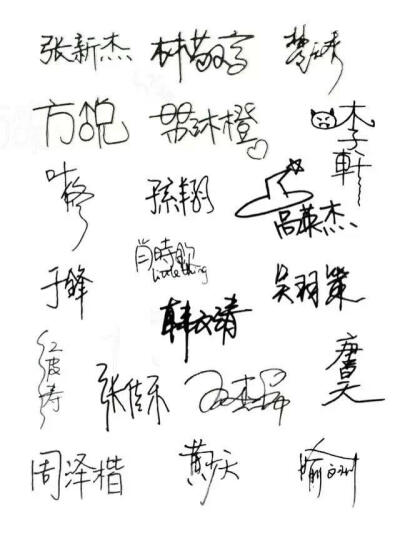 张新杰 林敬言 楚云秀
方锐 苏沐橙 李軒
叶修 孫翔 高英杰
肖時欽
little thing
于锋 吴羽策
韩文清
江波涛 张佳乐 王杰希 唐昊
周泽楷 黄少天 喻文州